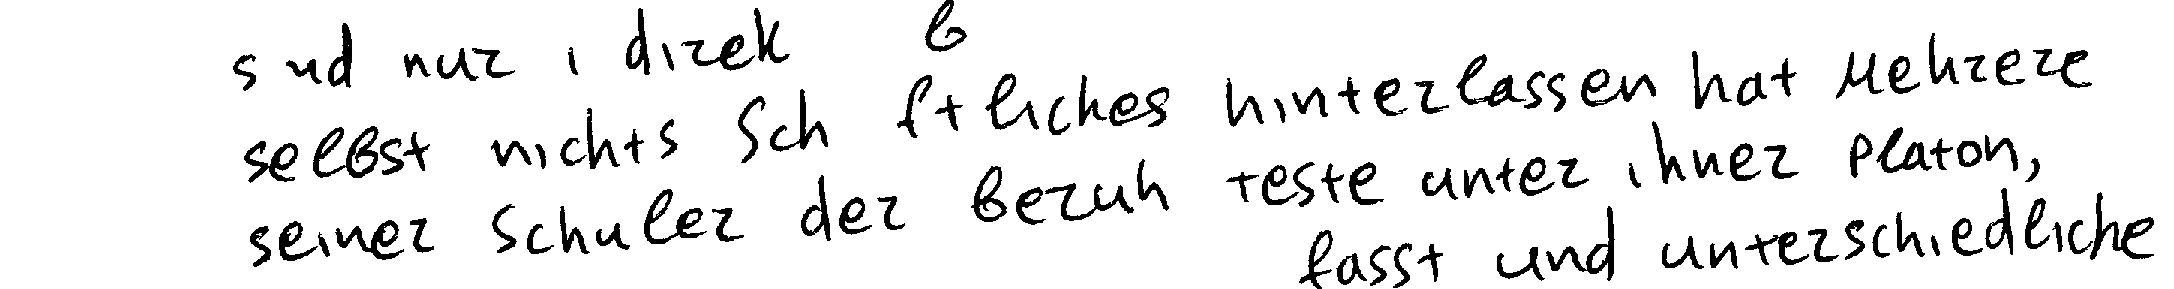 sind nur indirek
selbst nichts Schriftliches hinterlassen hat Mehrere
seiner Schüler der berühmteste unter ihner Platon,
fasst und unterschiedliche